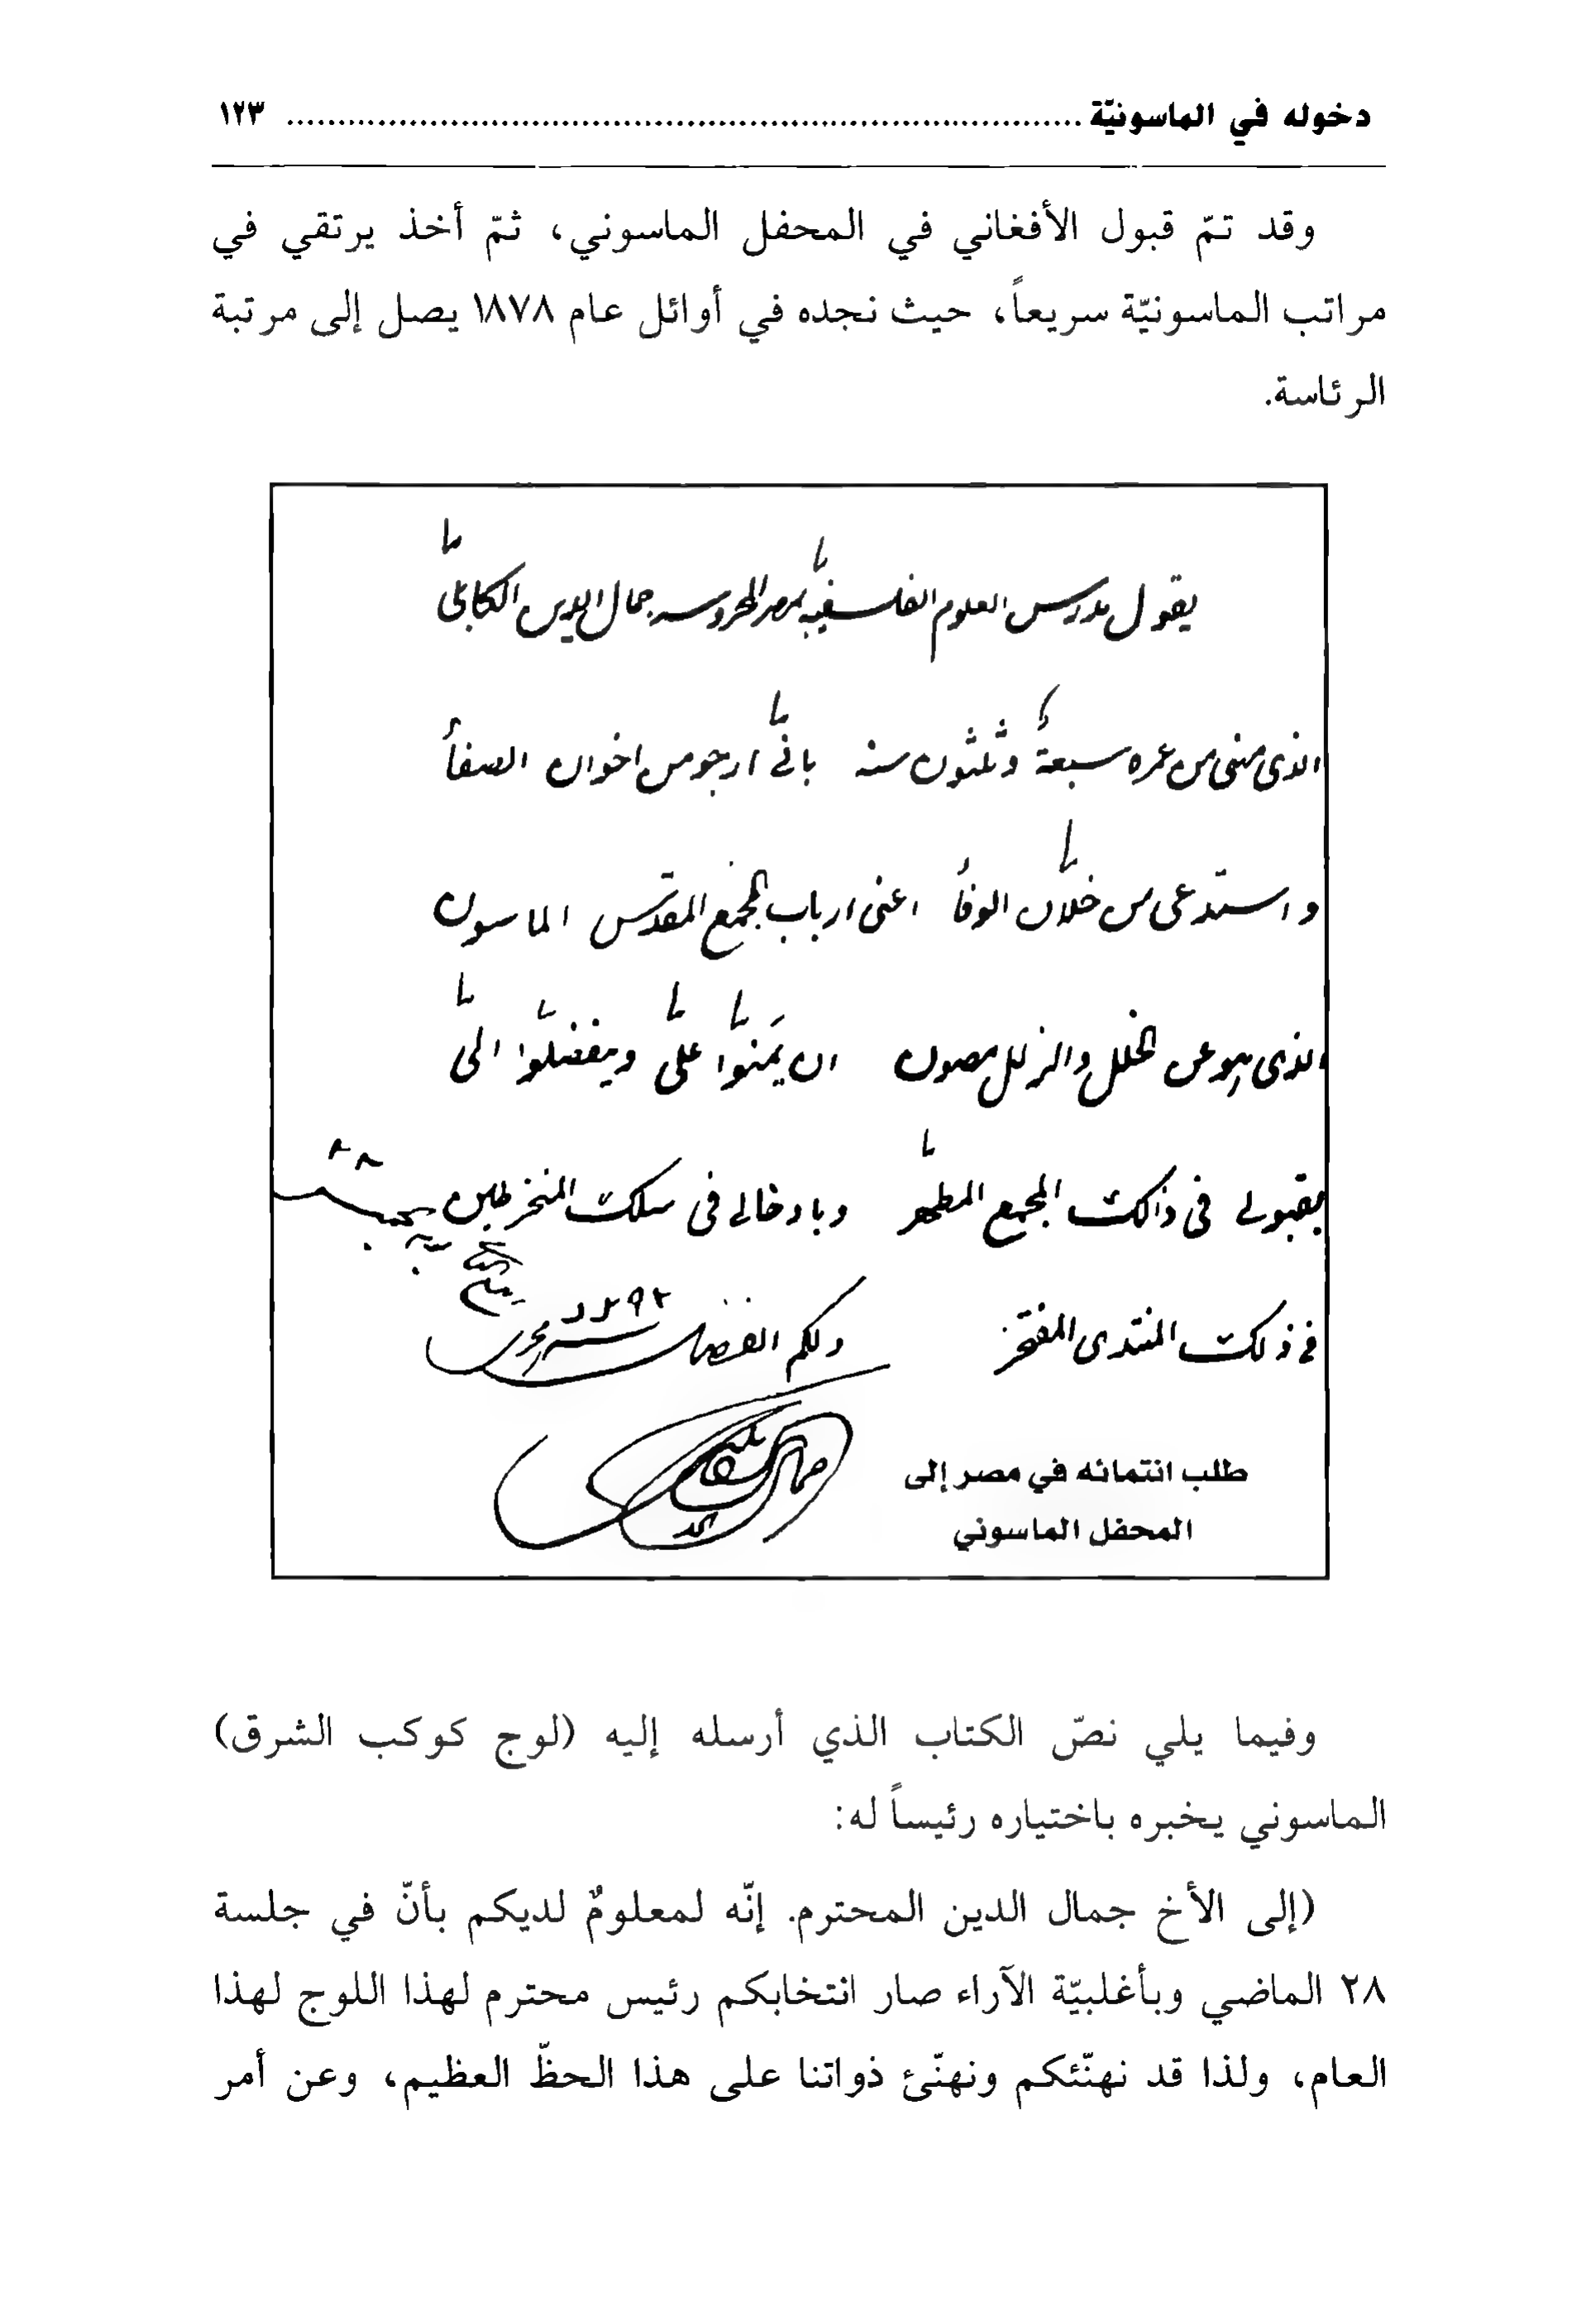 دخوله في الماسونيّة ........................................ ١٢٣
وقد تمّ قبول الأفغاني في المحفل الماسوني، ثمّ أخذ يرتقي في
مراتب الماسونيّة سريعاً، حيث نجده في أوائل عام ١٨٧٨ يصل إلى مرتبة
الرئاسة.
يقول مدرس العلوم الفلسفيه بمصر المحروسه جمال الدين الكابلى
الذى مضى من عمره سبعة وثلثون سنه بانى ارجو من اخوان الصفأ
و استدعى من خلان الوفأ اعنى ارباب المجمع المقدس الماسون
الذى هو عن الخلل والزلل مصون ان يمَنوّا على ويتفضلوّا الى
بقبولى فى ذالك المجمع المطهر وبادخالى فى سلك المنخرطين
فى ذلك المنتدى المفتخر ولكم الفضل
١٢٩٢
طلب انتمائه في مصر إلى
المحفل الماسوني
وفيما يلي نصّ الكتاب الذي أرسله إليه (لوج كوكب الشرق)
الماسوني يخبره باختياره رئيساً له:
(إلى الأخ جمال الدين المحترم. إنّه لمعلومٌ لديكم بأنّ في جلسة
٢٨ الماضي وبأغلبيّة الآراء صار انتخابكم رئيس محترم لهذا اللوج لهذا
العام، ولذا قد نهنّئكم ونهنّئ ذواتنا على هذا الحظّ العظيم، وعن أمر